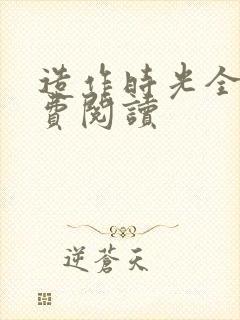 造作時光全
費閱讀
逆蒼天